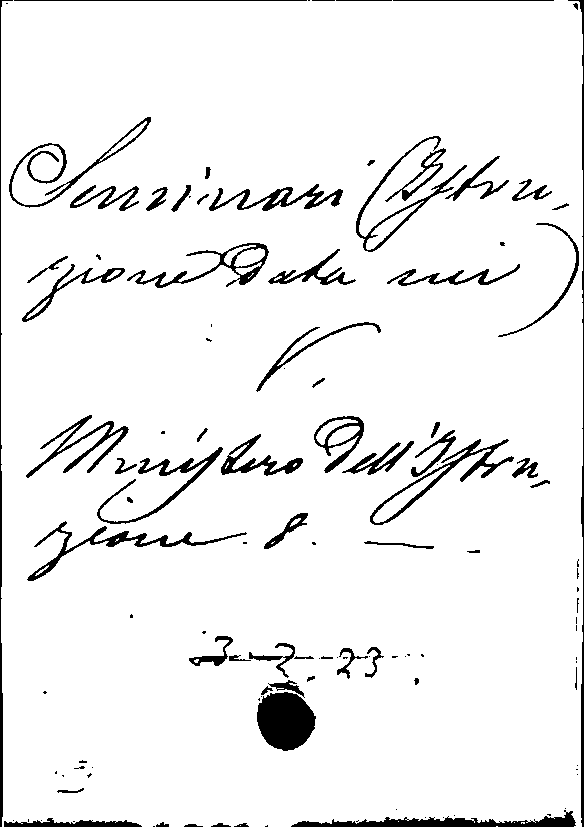 Seminari (Istru-
zione data nei)
V.
Ministero dell'Istru-
zione. 8. —
3. 2. 23.